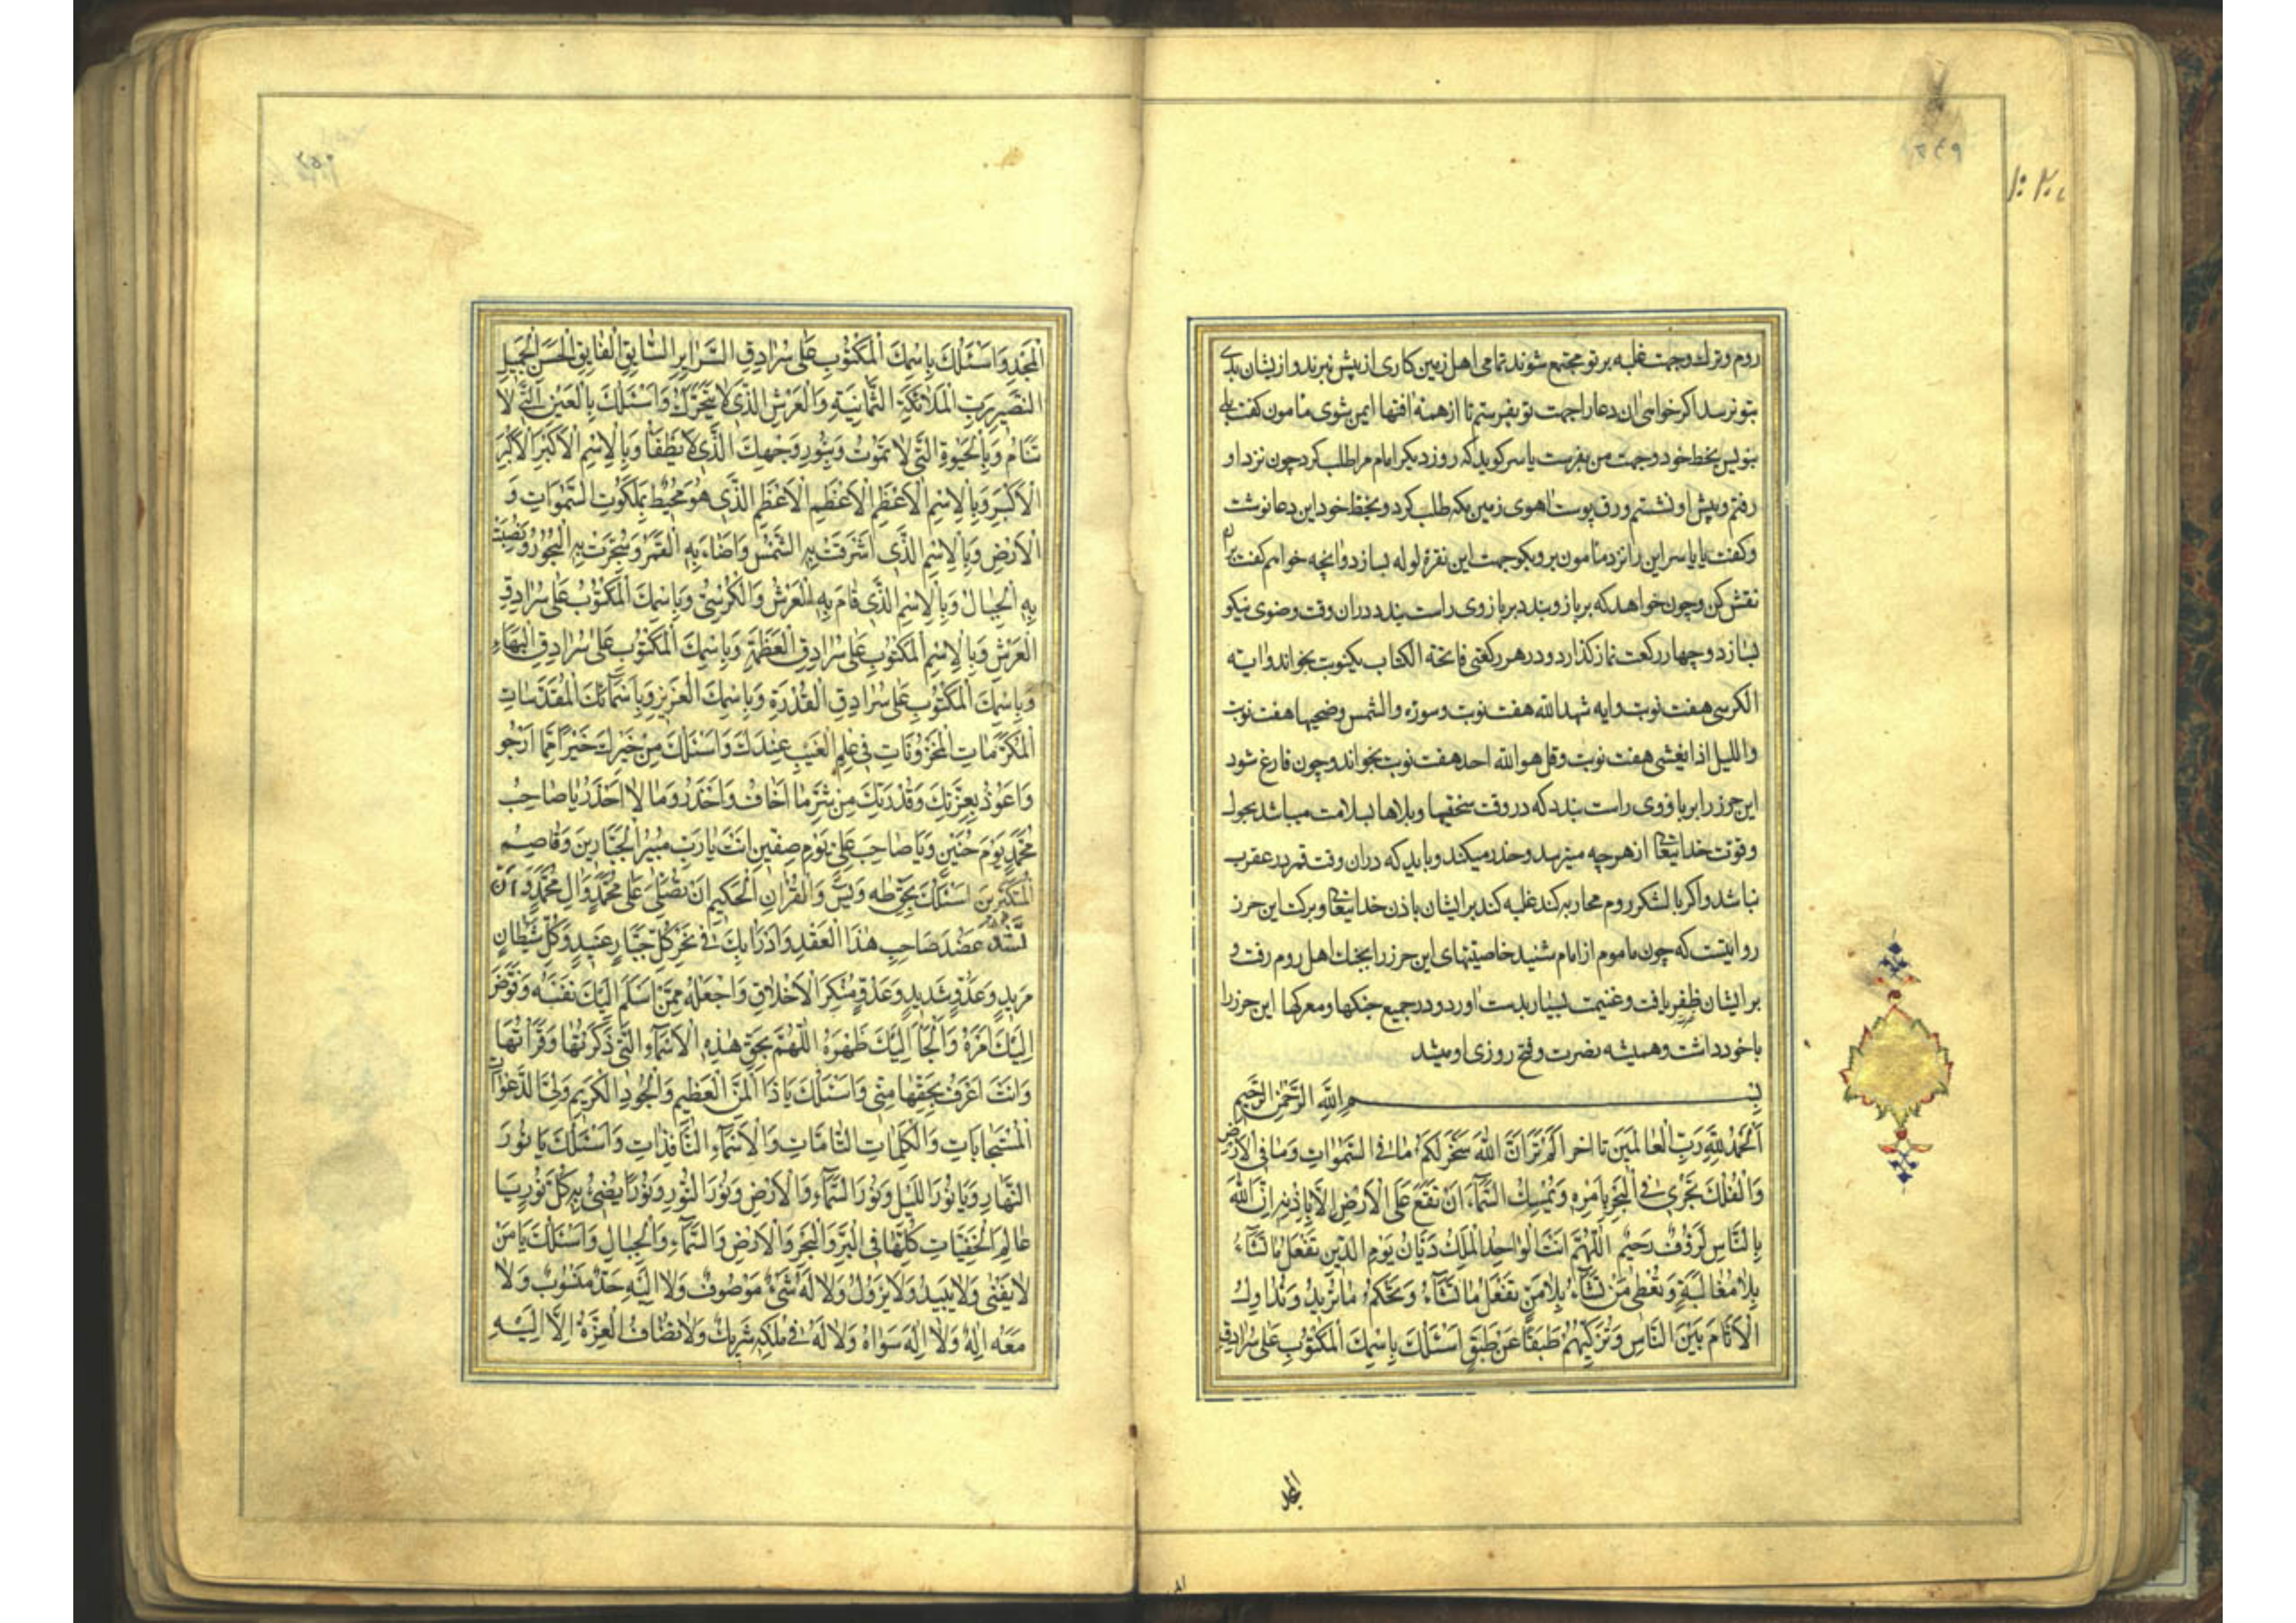 ۲۴۹
روم و ترك وجهت غلبه بر تو مجتمع شوند تمامی اهل زمین کاری از پیش نبرند و از یشان بدی
بتو نرسد اکر خواهی ان دعا را جهت تو بفرستم تا از همه افتها ایمن شوی مامون کفت بلی
بنویس بخط خود وجهت من بفرست یاسر کوید که روز دیکر امام مرا طلب کرد چون نزد او
رفتم و پیش او نشستم ورق پوست اهوی زمین مکه طلب کرد و بخط خود این دعا نوشت
و کفت یا یاسر این را نزد مامون بر و بکو جهت این نقره لوله بسازد و انچه خواهم کفت بران
نقش کن و چون خواهد که بر بازو بندد بر بازوی راست بندد دران وقت وضوی نیکو
بسازد و چهار رکعت نماز کذارد و در هر رکعتی فاتحة الکتاب یکنوبت بخواند و ایة
الکرسی هفت نوبت و ایه شهد الله هفت نوبت و سوره والشمس وضحیها هفت نوبت
واللیل اذا یغشی هفت نوبت و قل هو الله احد هفت نوبت بخواند و چون فارغ شود
این حرز را بر بازوی راست بندد که در وقت سختیها و بلاها بسلامت میباشد بحول
و قوت خدایتعا از هر چه میترسد و حذر میکند و باید که دران وقت قمر در عقرب
نباشد و اکر با لشکر روم محاربه کند غلبه کند بر ایشان باذن خدایتعا و برکت این حرز
روایتست که چون ماموم از امام شنید خاصیتهای این حرز را بجنك اهل روم رفت و
بر ایشان ظفر یافت و غنیمت بسیار بدست اورد و در جمیع جنکها و معرکها این حرز را
باخود داشت و همیشه نصرت و فتح روزی او میشد
بِسمِ اللهِ الرَّحمٰنِ الرَّحیمِ
اَلحَمدُ لِلّهِ رَبِّ العالَمینَ تا اخر اَلَم تَرَ اَنَّ اللهَ سَخَّرَ لَکُم ما فِی السَّمٰواتِ وَما فِی الاَرضِ
وَالفُلكَ تَجری فِی البَحرِ بِاَمرِهِ وَیُمسِكُ السَّمآءَ اَن تَقَعَ عَلَی الاَرضِ اِلّا بِاِذنِهِ اِنَّ اللهَ
بِالنّاسِ لَرَؤُفٌ رَحیمٌ اَللّهُمَّ اَنتَ الواحِدُ المَلِكُ دَیّانُ یَومِ الدّینِ تَفعَلُ ما تَشآءُ
بِلا مُغالَبَةٍ وَتُعطی مَن تَشآءُ بِلا مَنٍّ تَفعَلُ ما تَشآءُ وَتَحکُمُ ما تُریدُ وَتُداوِلُ
الاَیّامَ بَینَ النّاسِ وَتُرَکِّبُهُم طَبَقًا عَن طَبَقٍ اَسئَلُكَ بِاسمِكَ المَکتُوبِ عَلی سُرادِقِ
المجد
۲۵۰
المَجدِ وَاَسئَلُكَ بِاسمِكَ المَکتُوبِ عَلی سُرادِقِ السَّرآیِرِ السّابِقِ الفآیِقِ الحَسَنِ الجَمیلِ
النَّصیرِ رَبِّ المَلآئِکَةِ الثَّمانِیَةِ وَالعَرشِ الَّذی لا یَتَحَرَّكُ وَاَسئَلُكَ بِالعَینِ الَّتی لا
تَنامُ وَبِالحَیٰوةِ الَّتی لا تَمُوتُ وَبِنُورِ وَجهِكَ الَّذی لا یُطفَا وَبِالاِسمِ الاَکبَرِ الاَکبَرِ
الاَکبَرِ وَبِالاِسمِ الاَعظَمِ الاَعظَمِ الاَعظَمِ الَّذی هُوَ مُحیطٌ بِمَلَکُوتِ السَّمٰواتِ وَ
الاَرضِ وَبِالاِسمِ الَّذی اَشرَقَت بِهِ الشَّمسُ وَاَضاءَ بِهِ القَمَرُ وَسُجِّرَت بِهِ البُحُورُ وَنُصِبَت
بِهِ الجِبالُ وَبِالاِسمِ الَّذی قامَ بِهِ العَرشُ وَالکُرسِیُّ وَبِاسمِكَ المَکتُوبِ عَلی سُرادِقِ
العَرشِ وَبِالاِسمِ المَکتُوبِ عَلی سُرادِقِ العَظَمَةِ وَبِاسمِكَ المَکتُوبِ عَلی سُرادِقِ البَهآءِ
وَبِاسمِكَ المَکتُوبِ عَلی سُرادِقِ القُدرَةِ وَبِاسمِكَ العَزیزِ وَبِاَسمآئِكَ المُقَدَّساتِ
المُکَرَّماتِ المَخزُوناتِ فی عِلمِ الغَیبِ عِندَكَ وَاَسئَلُكَ مِن خَیرِكَ خَیرًا مِمّا اَرجُو
وَاَعُوذُ بِعِزَّتِكَ وَقُدرَتِكَ مِن شَرِّ ما اَخافُ وَاَحذَرُ وَما لا اَحذَرُ یا صاحِبَ
مُحَمَّدٍ یَومَ حُنَینٍ وَیا صاحِبَ عَلِیٍّ یَومَ صِفّینَ اَنتَ یا رَبِّ مُبیرُ الجَبّارینَ وَقاصِمُ
المُتَکَبِّرینَ اَسئَلُكَ بِحَقِّ طه وَیس وَالقُرانِ الحَکیمِ اَن تُصَلِّیَ عَلی مُحَمَّدٍ وَالِ مُحَمَّدٍ وَاَن
تَشُدَّ عَضُدَ صاحِبِ هٰذَا العَقدِ وَاَدرَاُ بِكَ فی نَحرِ کُلِّ جَبّارٍ عَنیدٍ وَکُلِّ شَیطانٍ
مَریدٍ وَعَدُوٍّ شَدیدٍ وَعَدُوٍّ مُنکَرِ الاَخلاقِ وَاجعَلهُ مِمَّن اَسلَمَ اِلَیكَ نَفسَهُ وَفَوَّضَ
اِلَیكَ اَمرَهُ وَاَلجَاَ اِلَیكَ ظَهرَهُ اَللّهُمَّ بِحَقِّ هٰذِهِ الاَسمآءِ الَّتی ذَکَرتُها وَقَرَاتُها
وَاَنتَ اَعرَفُ بِحَقِّها مِنّی وَاَسئَلُكَ یا ذَا المَنِّ العَظیمِ وَالجُودِ الکَریمِ وَلِیَّ الدَّعَواتِ
المُستَجاباتِ وَالکَلِماتِ التّآمّاتِ وَالاَسمآءِ النّافِذاتِ وَاَسئَلُكَ یا نُورَ
النَّهارِ وَیا نُورَ اللَّیلِ وَنُورَ السَّمآءِ وَالاَرضِ وَنُورَ النُّورِ وَنُورًا یُضیءُ بِهِ کُلُّ نُورٍ یا
عالِمَ الخَفِیّاتِ کُلِّها فِی البَرِّ وَالبَحرِ وَالاَرضِ وَالسَّمآءِ وَالجِبالِ وَاَسئَلُكَ یا مَن
لا یَفنی وَلا یَبیدُ وَلا یَزُولُ وَلا لَهُ شَیءٌ مَوصُوفٌ وَلا اِلَیهِ حَدٌّ مَنسُوبٌ وَلا
مَعَهُ اِلٰهٌ وَلا اِلٰهَ سَواهُ وَلا لَهُ فی مُلکِهِ شَریكٌ وَلا تُضافُ العِزَّةُ اِلّا اِلَیهِ